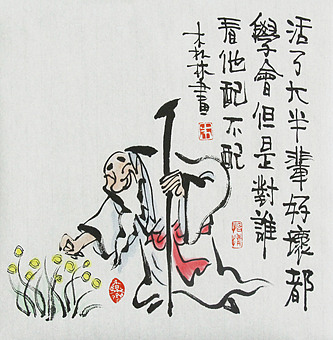 活了大半輩好壞都
學會但是對誰
看他配不配
林林木畫